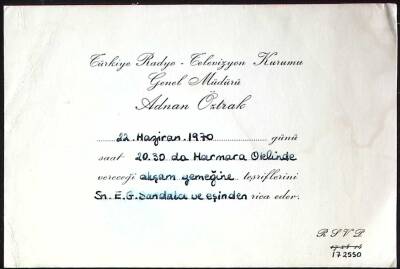 Türkiye Radyo - Televizyon Kurumu
Genel Müdürü
Adnan Öztrak
22. Haziran. 1970 günü
saat 20.30 da Marmara Otelinde
vereceği akşam yemeğine teşriflerini
Sn. E.G. Sandalcı ve eşinden rica eder.
R.S.V.P.
172550